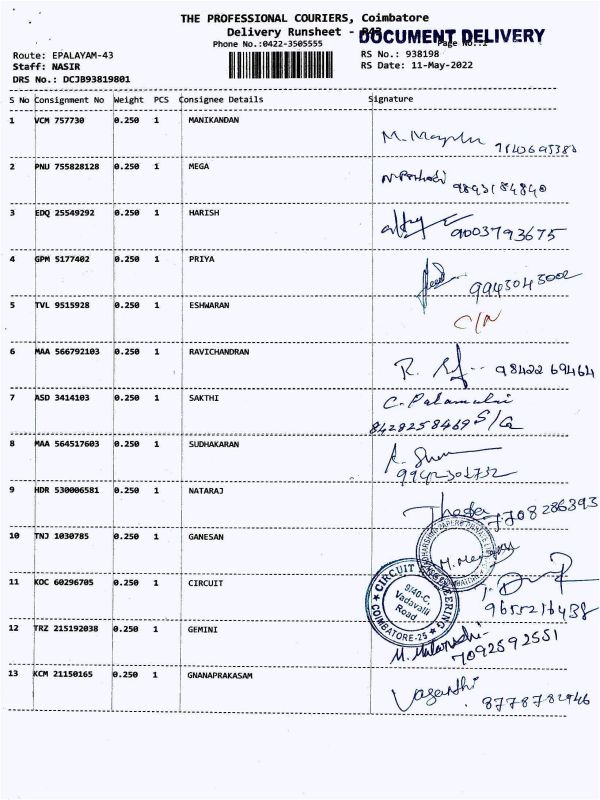 THE PROFESSIONAL COURIERS, Coimbatore
Delivery Runsheet -
DOCUMENT DELIVERY
Phone No.:0422-3505555
Page No.:1
Route: EPALAYAM-43
RS No.: 938198
Staff: NASIR
RS Date: 11-May-2022
DRS No.: DCJB93819801
S No Consignment No Weight PCS Consignee Details Signature
1 VCM 757730 0.250 1 MANIKANDAN
2 PNU 755828128 0.250 1 MEGA
3 EDQ 25549292 0.250 1 HARISH
9003793675
4 GPM 5177402 0.250 1 PRIYA
9943043002
5 TVL 9515928 0.250 1 ESHWARAN
C/N
6 MAA 566792103 0.250 1 RAVICHANDRAN
98422 69464
7 ASD 3414103 0.250 1 SAKTHI
8428258469
8 MAA 564517603 0.250 1 SUDHAKARAN
9 HDR 530006581 0.250 1 NATARAJ
7708286393
10 TNJ 1030785 0.250 1 GANESAN
11 KOC 60296705 0.250 1 CIRCUIT
CIRCUIT
9/40-C,
Vadavalli
Road
COIMBATORE-25
9655216438
12 TRZ 215192038 0.250 1 GEMINI
7092592551
13 KCM 21150165 0.250 1 GNANAPRAKASAM
Vasanthi